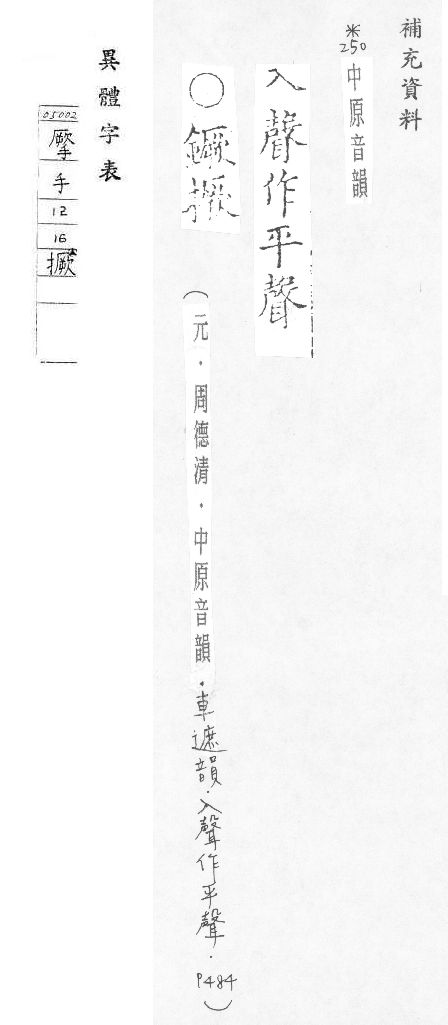 補充資料
*250
中原音韻
入聲作平聲
○鐝撅
(元．周德清．中原音韻．車遮韻．入聲作平聲．P484)
異體字表
05002
擪
手
12
16
撅